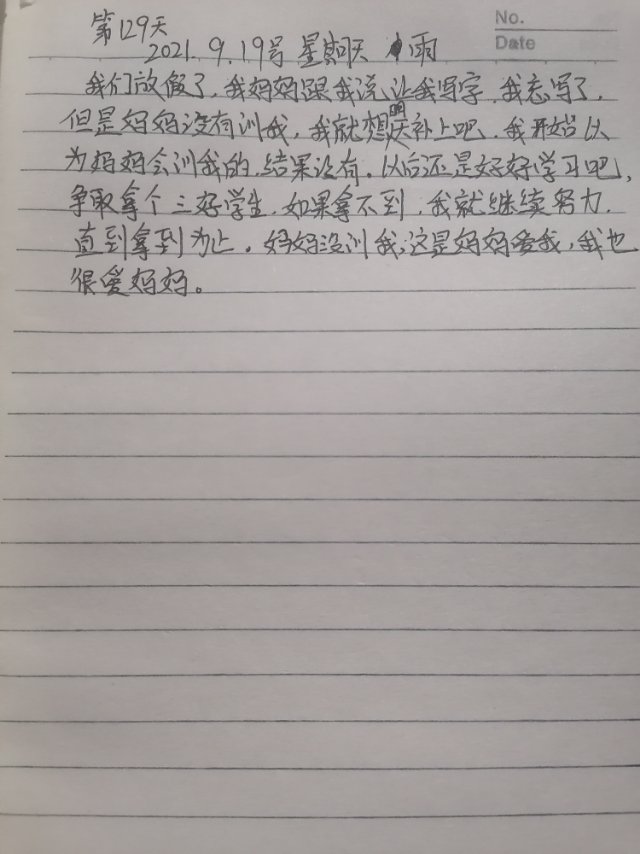 No.
Date
第129天
2021.9.19号 星期天 小雨
我们放假了,我妈妈跟我说,让我写字,我忘写了,
但是妈妈没有训我,我就想明天补上吧,我开始以
为妈妈会训我的,结果没有。以后还是好好学习吧,
争取拿个三好学生,如果拿不到,我就继续努力,
直到拿到为止。妈妈没训我,这是妈妈爱我,我也
很爱妈妈。